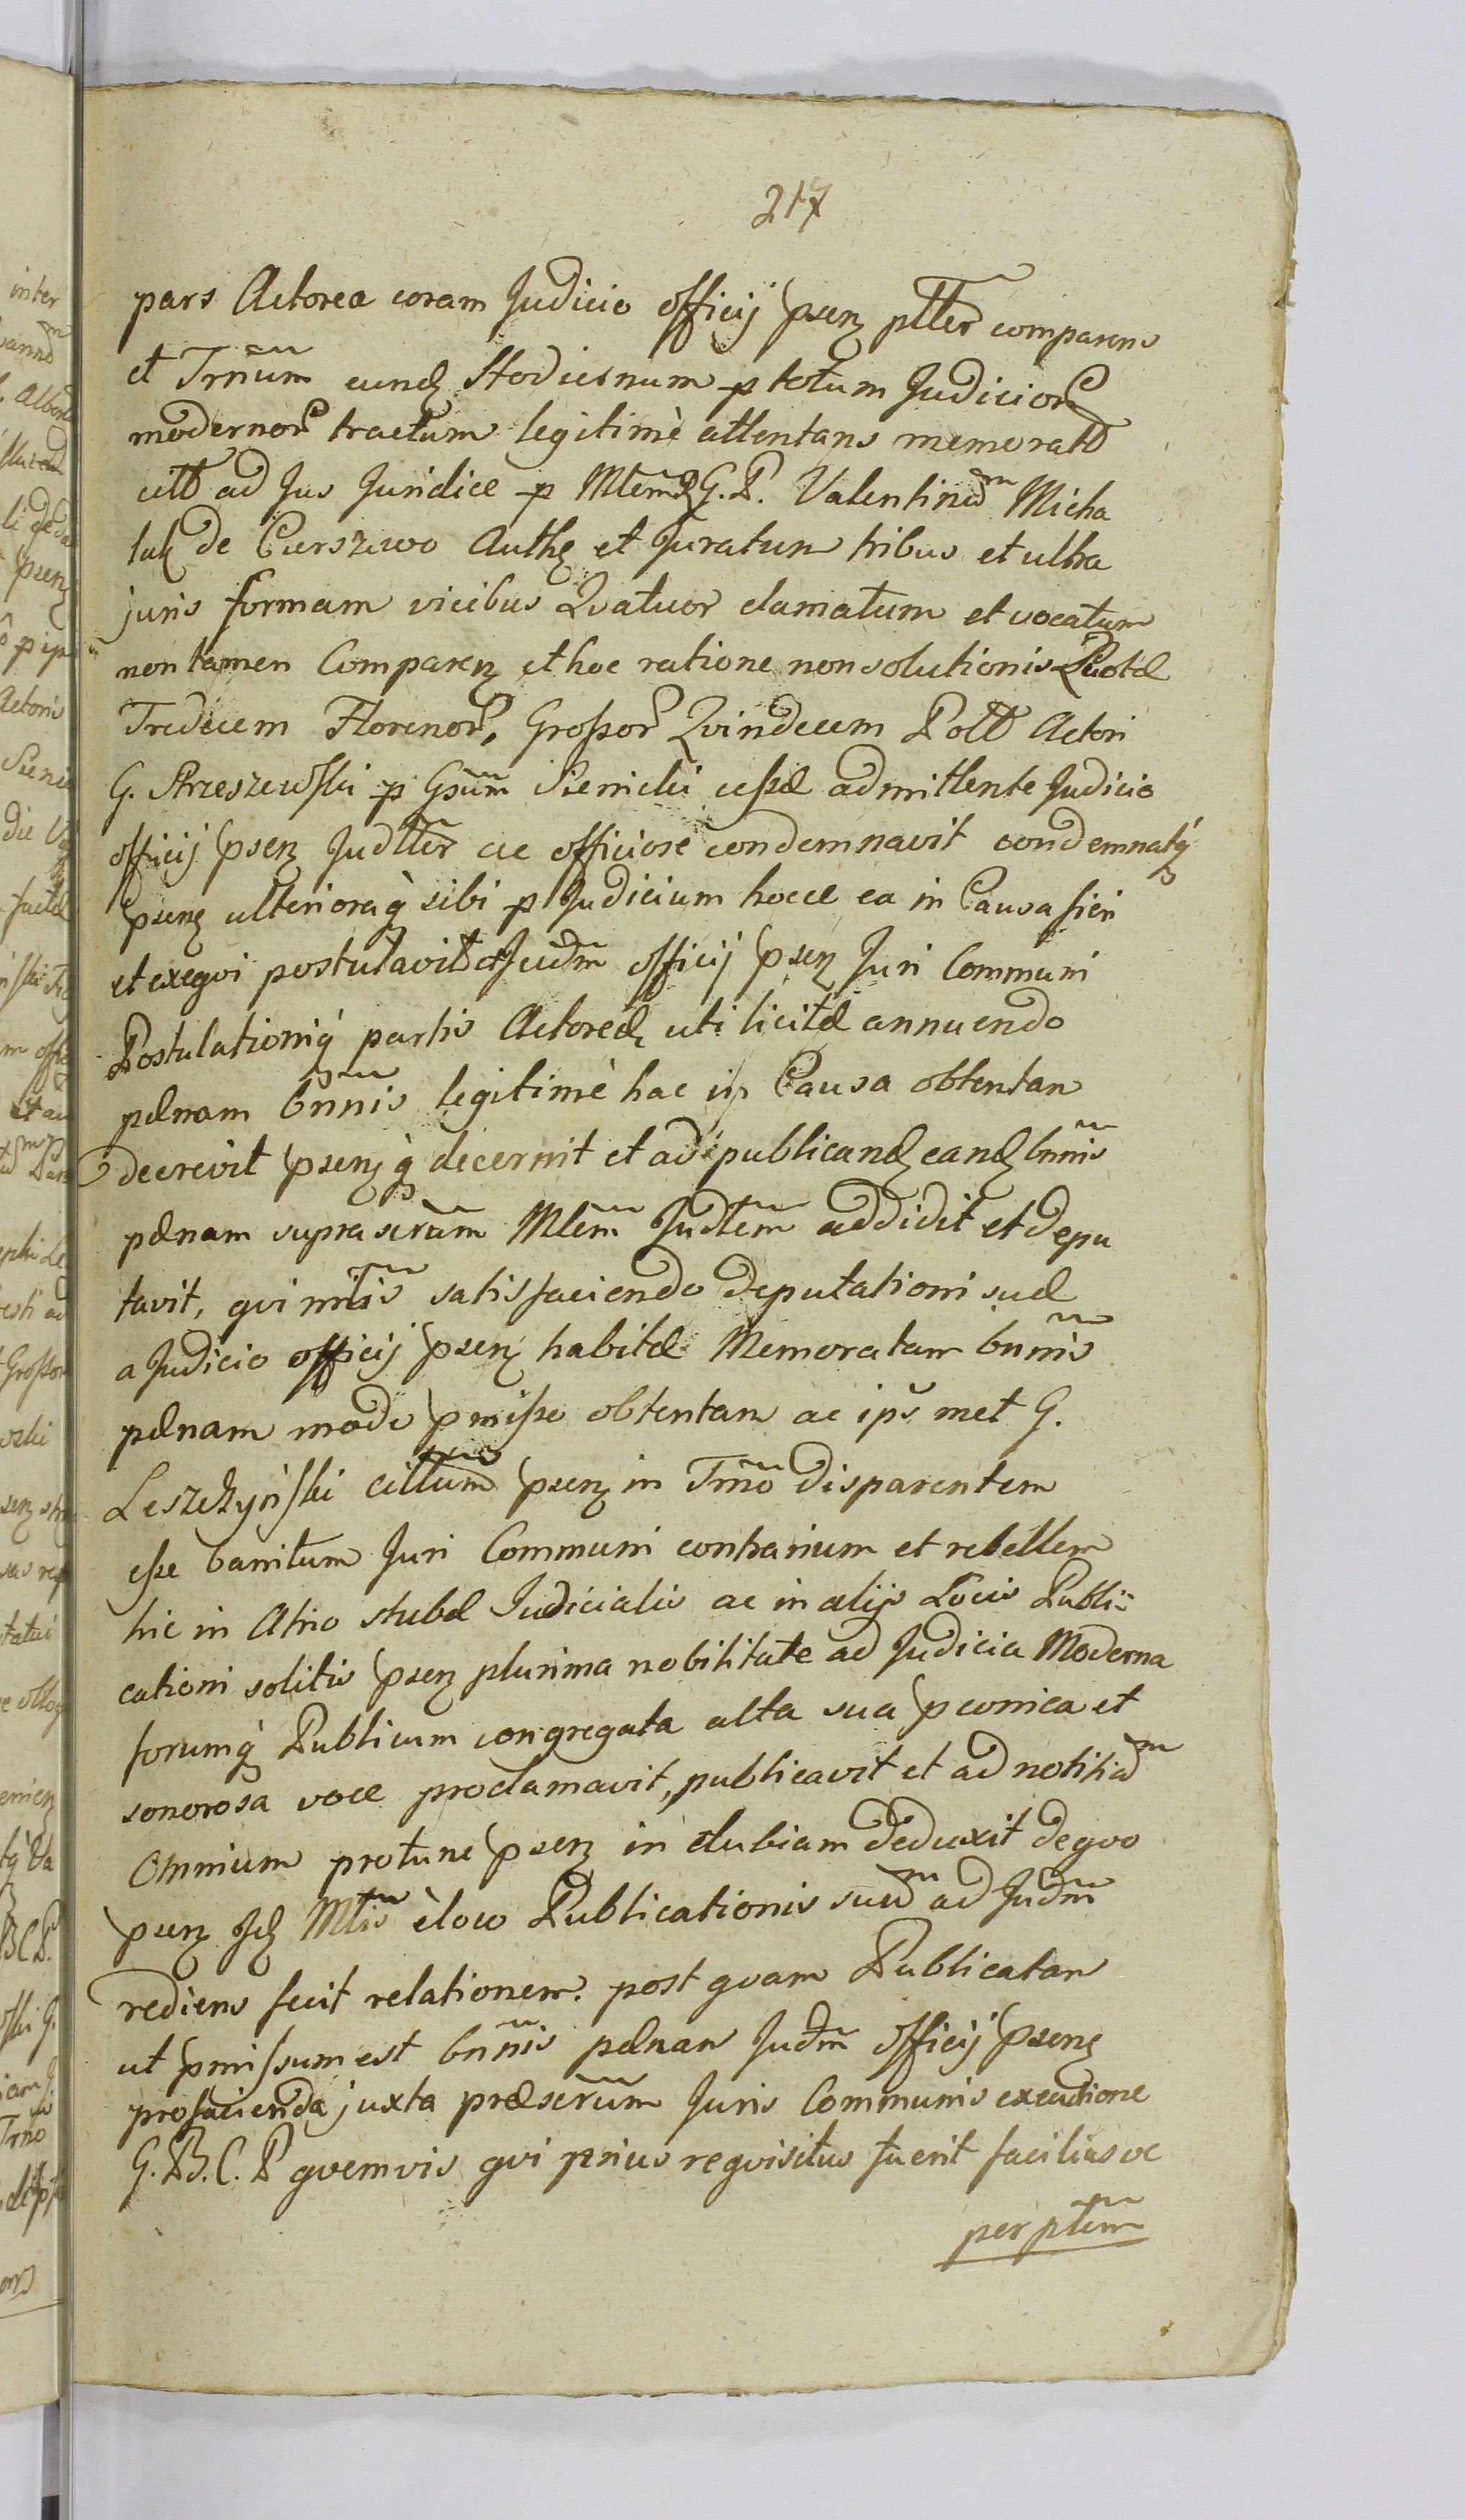 217
pars Actorea coram Judicio officij psenz pltter comparens
et Trnum eundz Hodiernum p totum Judicior
modernor tractum legitime attentans memorat
citt ad Jus Juridice p Mtem G. P. Valentinum Micha
lak de Cierszewo Authz et Juratum tribus et ultra
juris formam vicibus Qvatuor clamatum et vocatum
non tamen Comparenz et hoc ratione non solutionis Quotæ
Tredecem Florenor, Grossor Qvindecem Poll Actori
G. Strzeszewski p Gsum Sienicki cessæ admittente Judicio
officij psenz Judtter ac officiose condemnavit condemnatq
psenz ulterioraq sibi p Judicium hocce ea in Causa fieri
et exeqvi postulavit et Judm officij psenz Juri Communi
Postulationiq partis Actoreæ uti licitæ annuendo
pænam bnnis legitime hac in Causa obtentam
decrevit psenzq decernit et ad publicandz eandz bnnis
pænam suprascrum Mtem Judtem addidit et depu
tavit, qvi mtis satisfaciendo deputationi suæ
a Judicio officij psenz habitæ Memoratam bnnis
pænam modo pmisso obtentam ac ips met G.
Leszczyński cittum psenz in Trno disparentem
esse banitum Juri Communi contrarium et rebellem
hic in Atrio stubæ Judicialis ac in alijs Locis Publi=
cationi solitis psenz plurima nobilitate ad Judicia Moderna
forumq Publicum congregata alta sua pconica et
sonorosa voce proclamavit, publicavit et ad notitiam
Omnium pro tunc psenz in dubiam deduxit de qvo
psenz Jdz Mtis e loco Publicationis suæ ad Judm
rediens fecit relationem. post qvam Publicatam
ut pmissum est bnnis pænam Judm officij psenz
pro facienda juxta præscrum Juris Communis executione
G. B. C. P qvemvis qvi prius reqvisitus fuerit facilius ve
per ptem